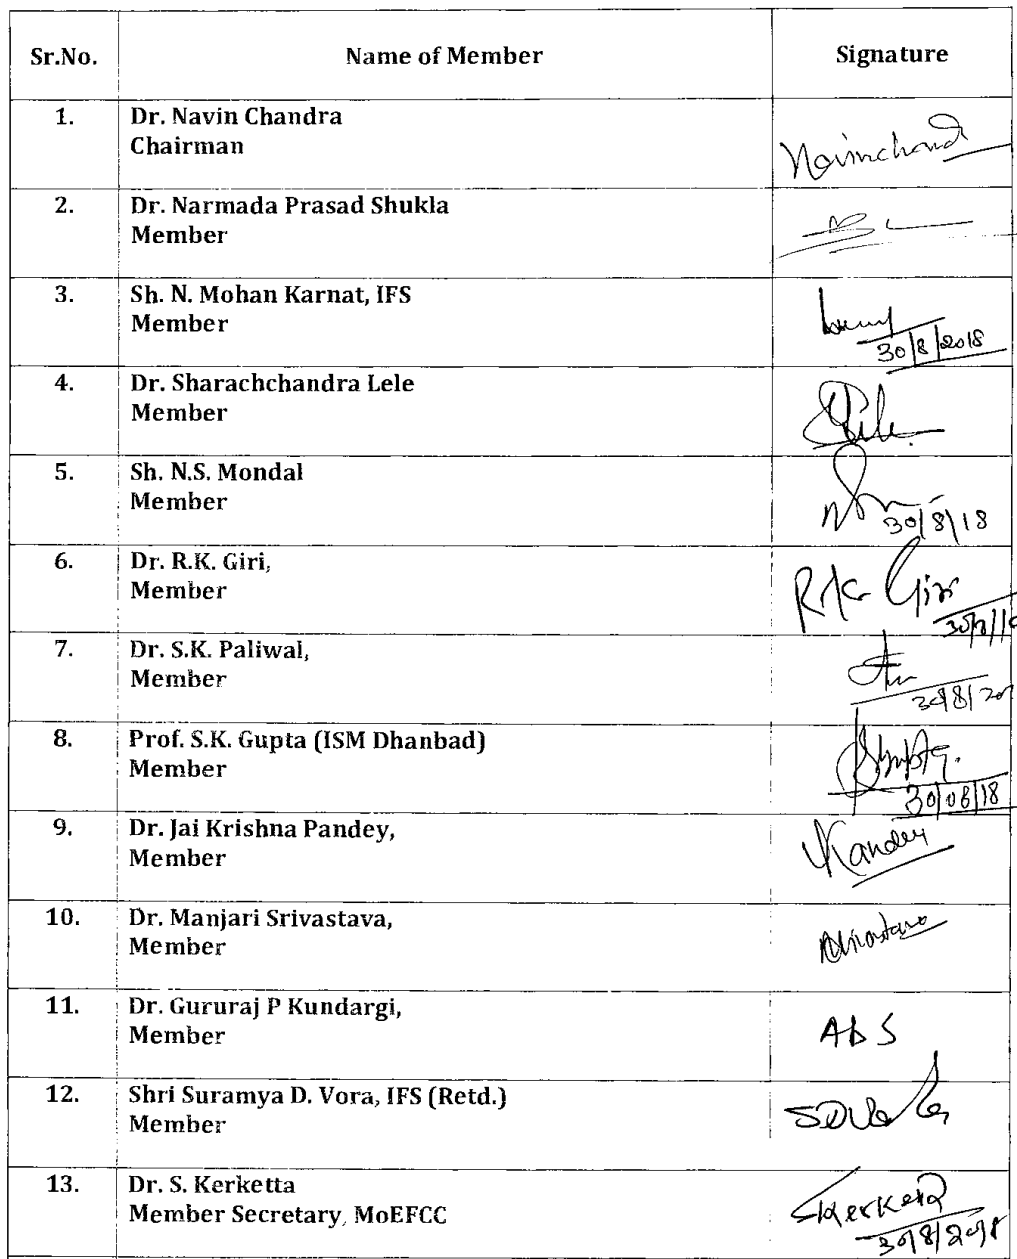 Sr.No. Name of Member Signature
1. Dr. Navin Chandra
Chairman
Navinchand
2. Dr. Narmada Prasad Shukla
Member
3. Sh. N. Mohan Karnat, IFS
Member
30/8/2018
4. Dr. Sharachchandra Lele
Member
5. Sh. N.S. Mondal
Member
30/8/18
6. Dr. R.K. Giri,
Member
RK Giri
7. Dr. S.K. Paliwal,
Member
30/8/201
8. Prof. S.K. Gupta (ISM Dhanbad)
Member
SGupta.
30/08/18
9. Dr. Jai Krishna Pandey,
Member
JKPandey
10. Dr. Manjari Srivastava,
Member
11. Dr. Gururaj P Kundargi,
Member
Abs
12. Shri Suramya D. Vora, IFS (Retd.)
Member
SDVora
13. Dr. S. Kerketta
Member Secretary, MoEFCC
SKerketta
30/8/2018